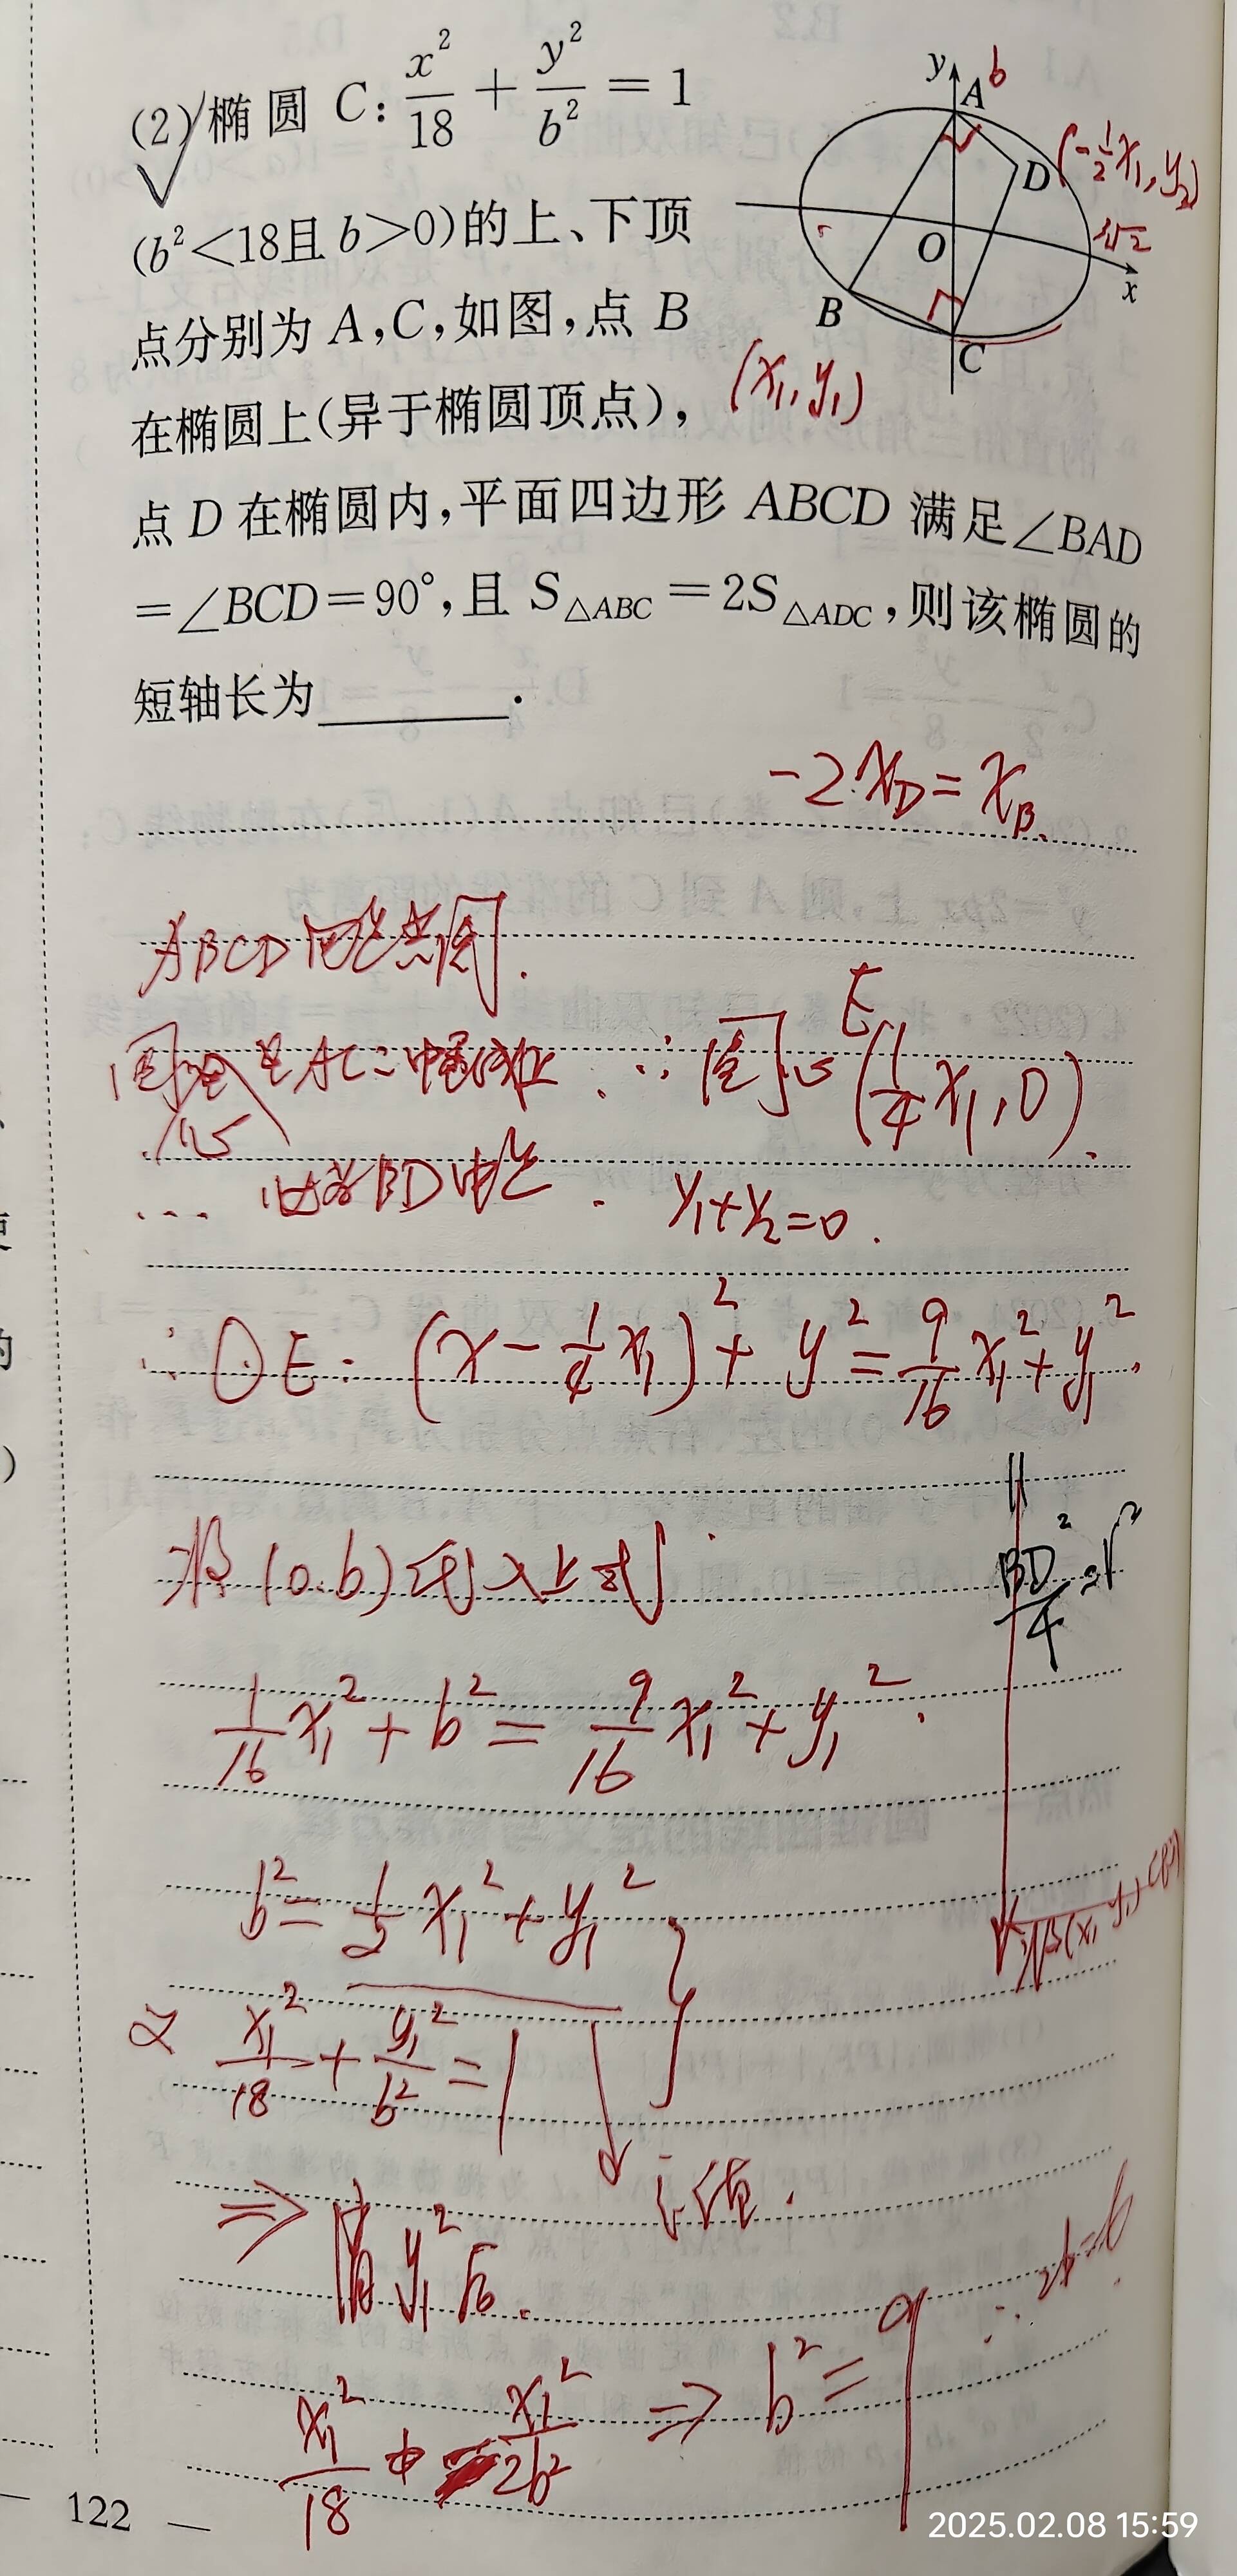 (2) 椭圆 C: x²/18 + y²/b² = 1
(b²<18且 b>0)的上、下顶
点分别为 A,C,如图,点 B
在椭圆上(异于椭圆顶点),
点 D 在椭圆内,平面四边形 ABCD 满足∠BAD
=∠BCD=90°,且 S△ABC=2S△ADC,则该椭圆的
短轴长为________.
y
A
b
D
(-½x₁, y₂)
O
x
B
C
(x₁, y₁)
-2x_D = x_B.
ABCD四点共圆.
∴圆心 E(¼x₁, 0).
BD中点. y₁+y₂=0.
∴⊙E: (x-¼x₁)²+y²=9/16x₁²+y₁²
BD²/4=r²
将(0.b)代入上式
1/16x₁²+b²=9/16x₁²+y₁².
b²=½x₁²+y₁²
又 x₁²/18+y₁²/b²=1
⇒消y₁²后.
x₁²/18 x₁²/2b² ⇒ b²=9
∴2b=6
122
2025.02.08 15:59